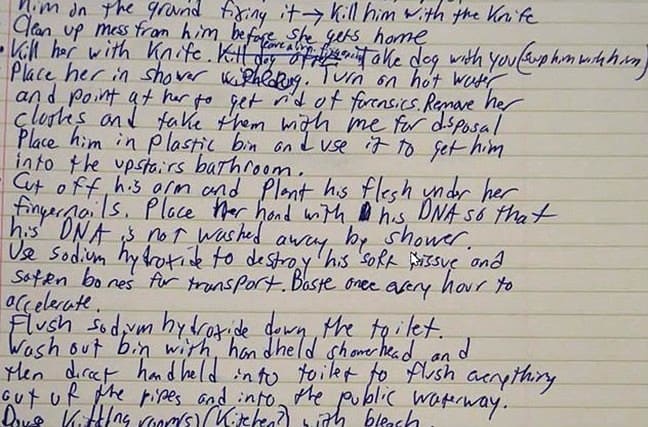 him on the ground fixing it → Kill him with the Knife
Clean up mess from him before she gets home
• Kill her with Knife. Take dog with you (swap him with him)
Place her in shower. Turn on hot water
and point at her to get rid of forensics. Remove her
clothes and take them with me for disposal
Place him in plastic bin and use it to get him
into the upstairs bathroom.
Cut off his arm and Plant his flesh under her
fingernails. Place her hand with his DNA so that
his DNA is not washed away by shower.
Use sodium hydroxide to destroy his soft tissue and
soften bones for transport. Baste once every hour to
accelerate.
Flush sodium hydroxide down the toilet.
Wash out bin with handheld showerhead and
then direct handheld into toilet to flush everything
out of the pipes and into the public waterway.
Douse Killing room(s) (Kitchen?) with bleach